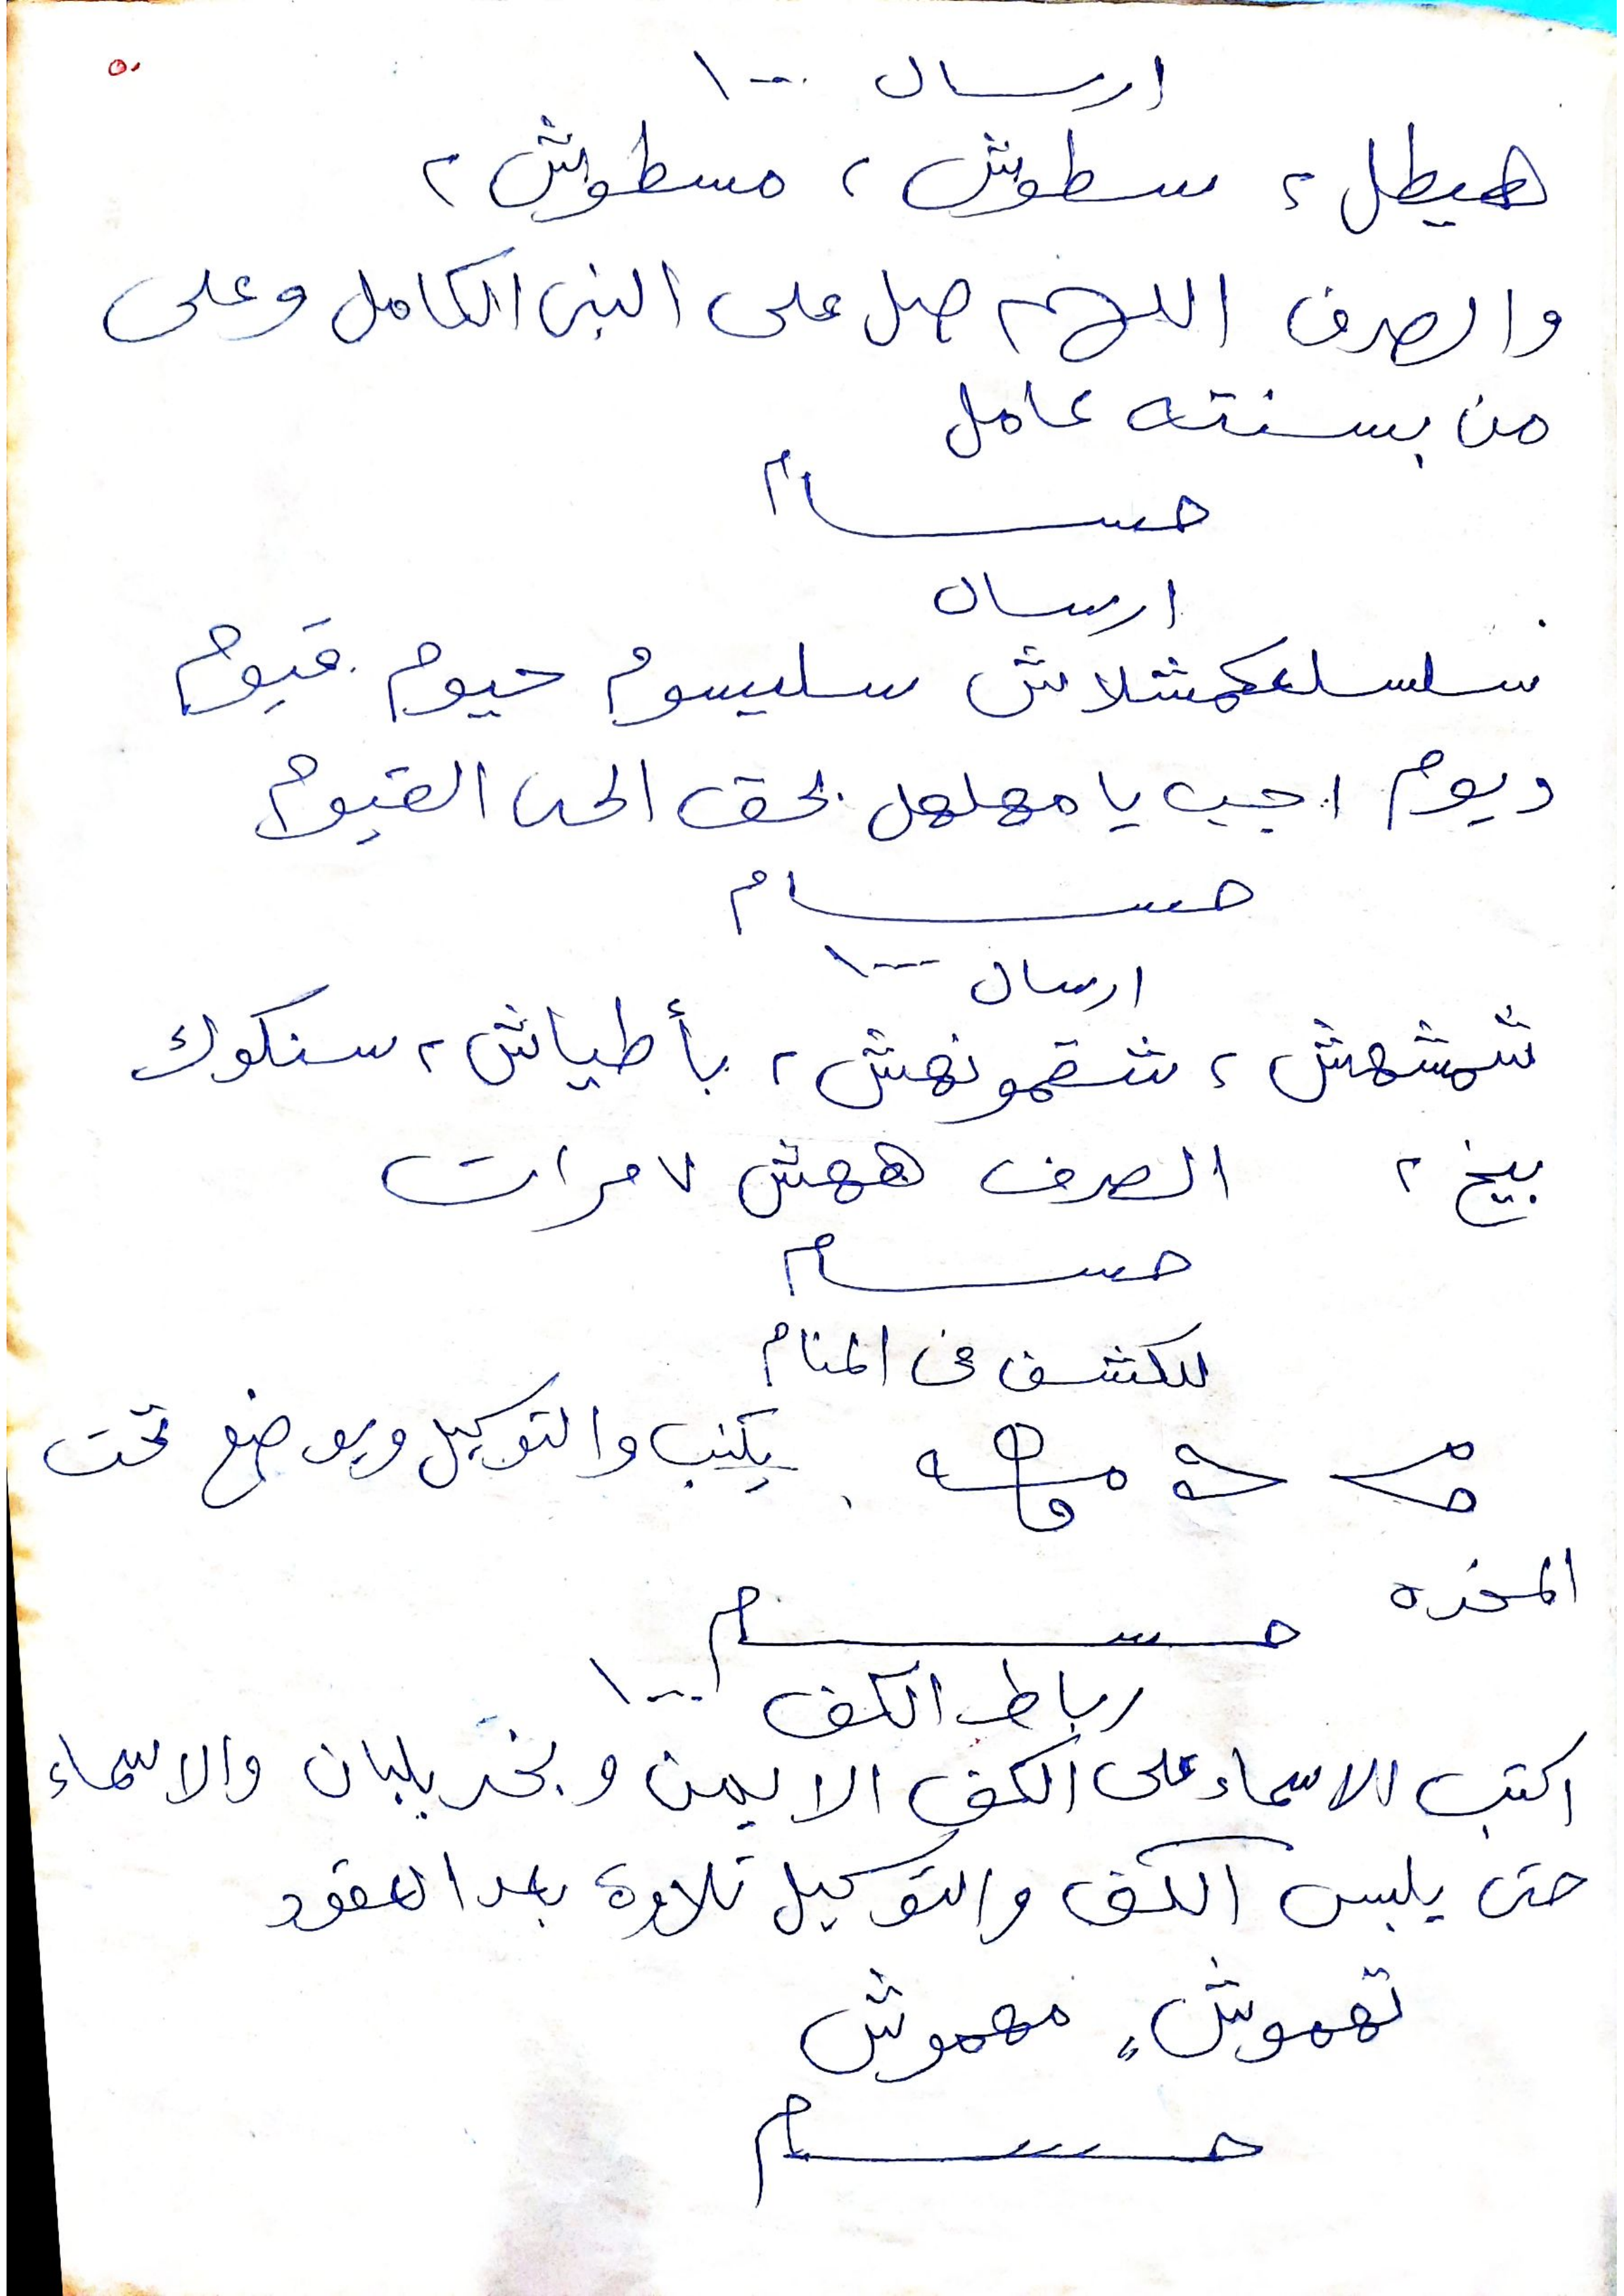 ٥٠
ارسال ١٠٠٠
هيطل ٢ سطوش ٢ مسطوش ٢
والصرف اللهم صل على النبى الكامل وعلى
من بسنته عامل
حسام
ارسال
سلسلعكمشلاش سليسوم حيوم قيوم
ديوم اجب يا مهلهل بحق الحى القيوم
حسام
ارسال ١٠٠٠
شمشهش ٢ شقمونهش ٢ بأطياش ٢ سنكوك
بيخ ٢ الصرف ههش ٧ مرات
حسام
للكشف فى المنام
يكتب والتوكيل ويوضع تحت
المخده
حسام
رباط الكف ١٠٠٠
اكتب الاسماء على الكف الايمن وبخر بلبان والاسماء
حتى يلبس الكف والتوكيل تلاوة بعد العقود
تهموش " مهموش
حسام